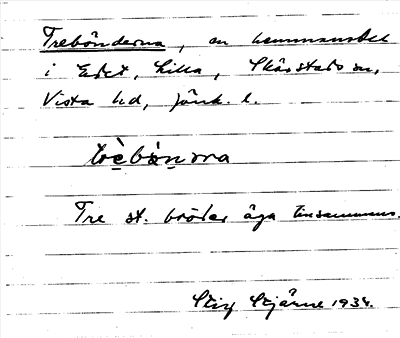 Trebönderna, en hemmansdel
i Edet, Lilla, Skärstads sn,
Vista hd, Jönk. l.
trèbònna
Tre st. bröder äga tillsammans.
Stig Stjärne 1934.